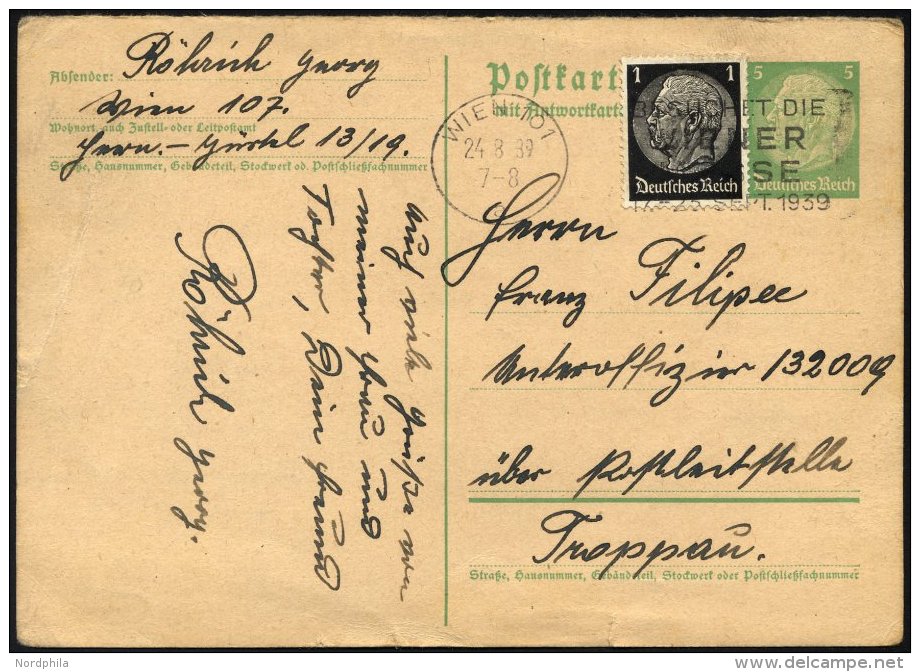 Absender: Röhrich Georg
Wien 107.
Wohnort, auch Zustell- oder Leitpostamt
Hern.-Gürtel 13/19.
Straße, Hausnummer, Gebäudeteil, Stockwerk od. Postschließfachnummer
Auch viele Grüße von
meiner Frau und
Tochter, Dein Freund
Röhrich Georg.
Postkart
Mit Antwortkart
WIEN 101
24 8 39
7-8
1 1
Deutsches Reich
5 5
Deutsches Reich
BESUCHET DIE
WIENER
SSE
17.-23. SEPT. 1939
Herrn
Franz Filipec
Unteroffizier 132009
über Postleitstelle
Troppau.
Straße, Hausnummer, Gebäudeteil, Stockwerk oder Postschließfachnummer
Nordphila
delcampe.net